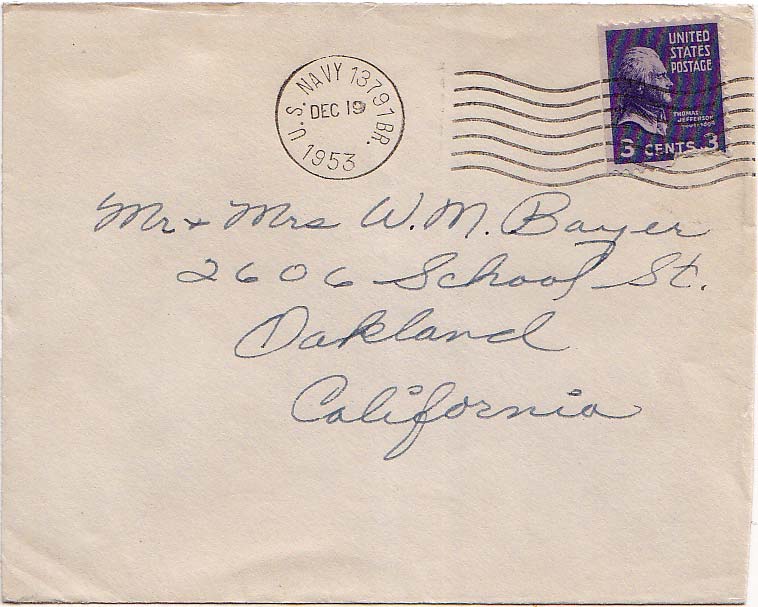 U.S. NAVY 13797 BR.
DEC 19
1953
UNITED
STATES
POSTAGE
THOMAS
JEFFERSON
3 CENTS 3
Mr + Mrs W. M. Bayer
2606 School St.
Oakland
California